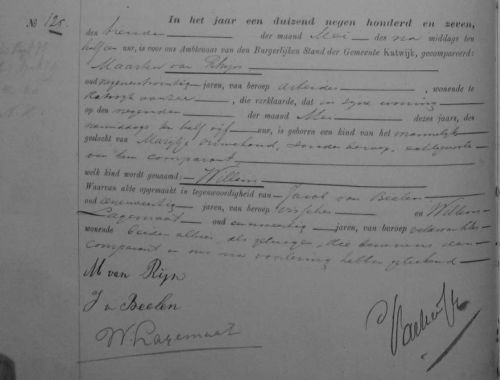 No 128.
In het jaar een duizend negen honderd en zeven,
den tienden der maand Mei des na middags ten
half een ure, is voor ons Ambtenaar van den Burgerlijken Stand der Gemeente Katwijk, gecompareerd:
Maarten van Rhijn
oud negenentwintig jaren, van beroep arbeider, wonende te
Katwijk aan zee, die verklaarde, dat in zijne woning
op den negenden der maand Mei dezes jaars, des
namiddags ten half vijf ure, is geboren een kind van het mannelijk
geslacht van Marijtje Ouwehand, zonder beroep, echtgenoote
van hem comparant
welk kind wordt genaamd: Willem
Waarvan akte opgemaakt in tegenwoordigheid van Jacob van Beelen
oud jaren, van beroep visscher en Willem
Lagemaat oud jaren, van beroep veldwachter
wonende beiden alhier, als getuigen, die benevens den
comparant en ons na voorlezing hebben geteekend
M van Rijn
J v Beelen
W. Lagemaat